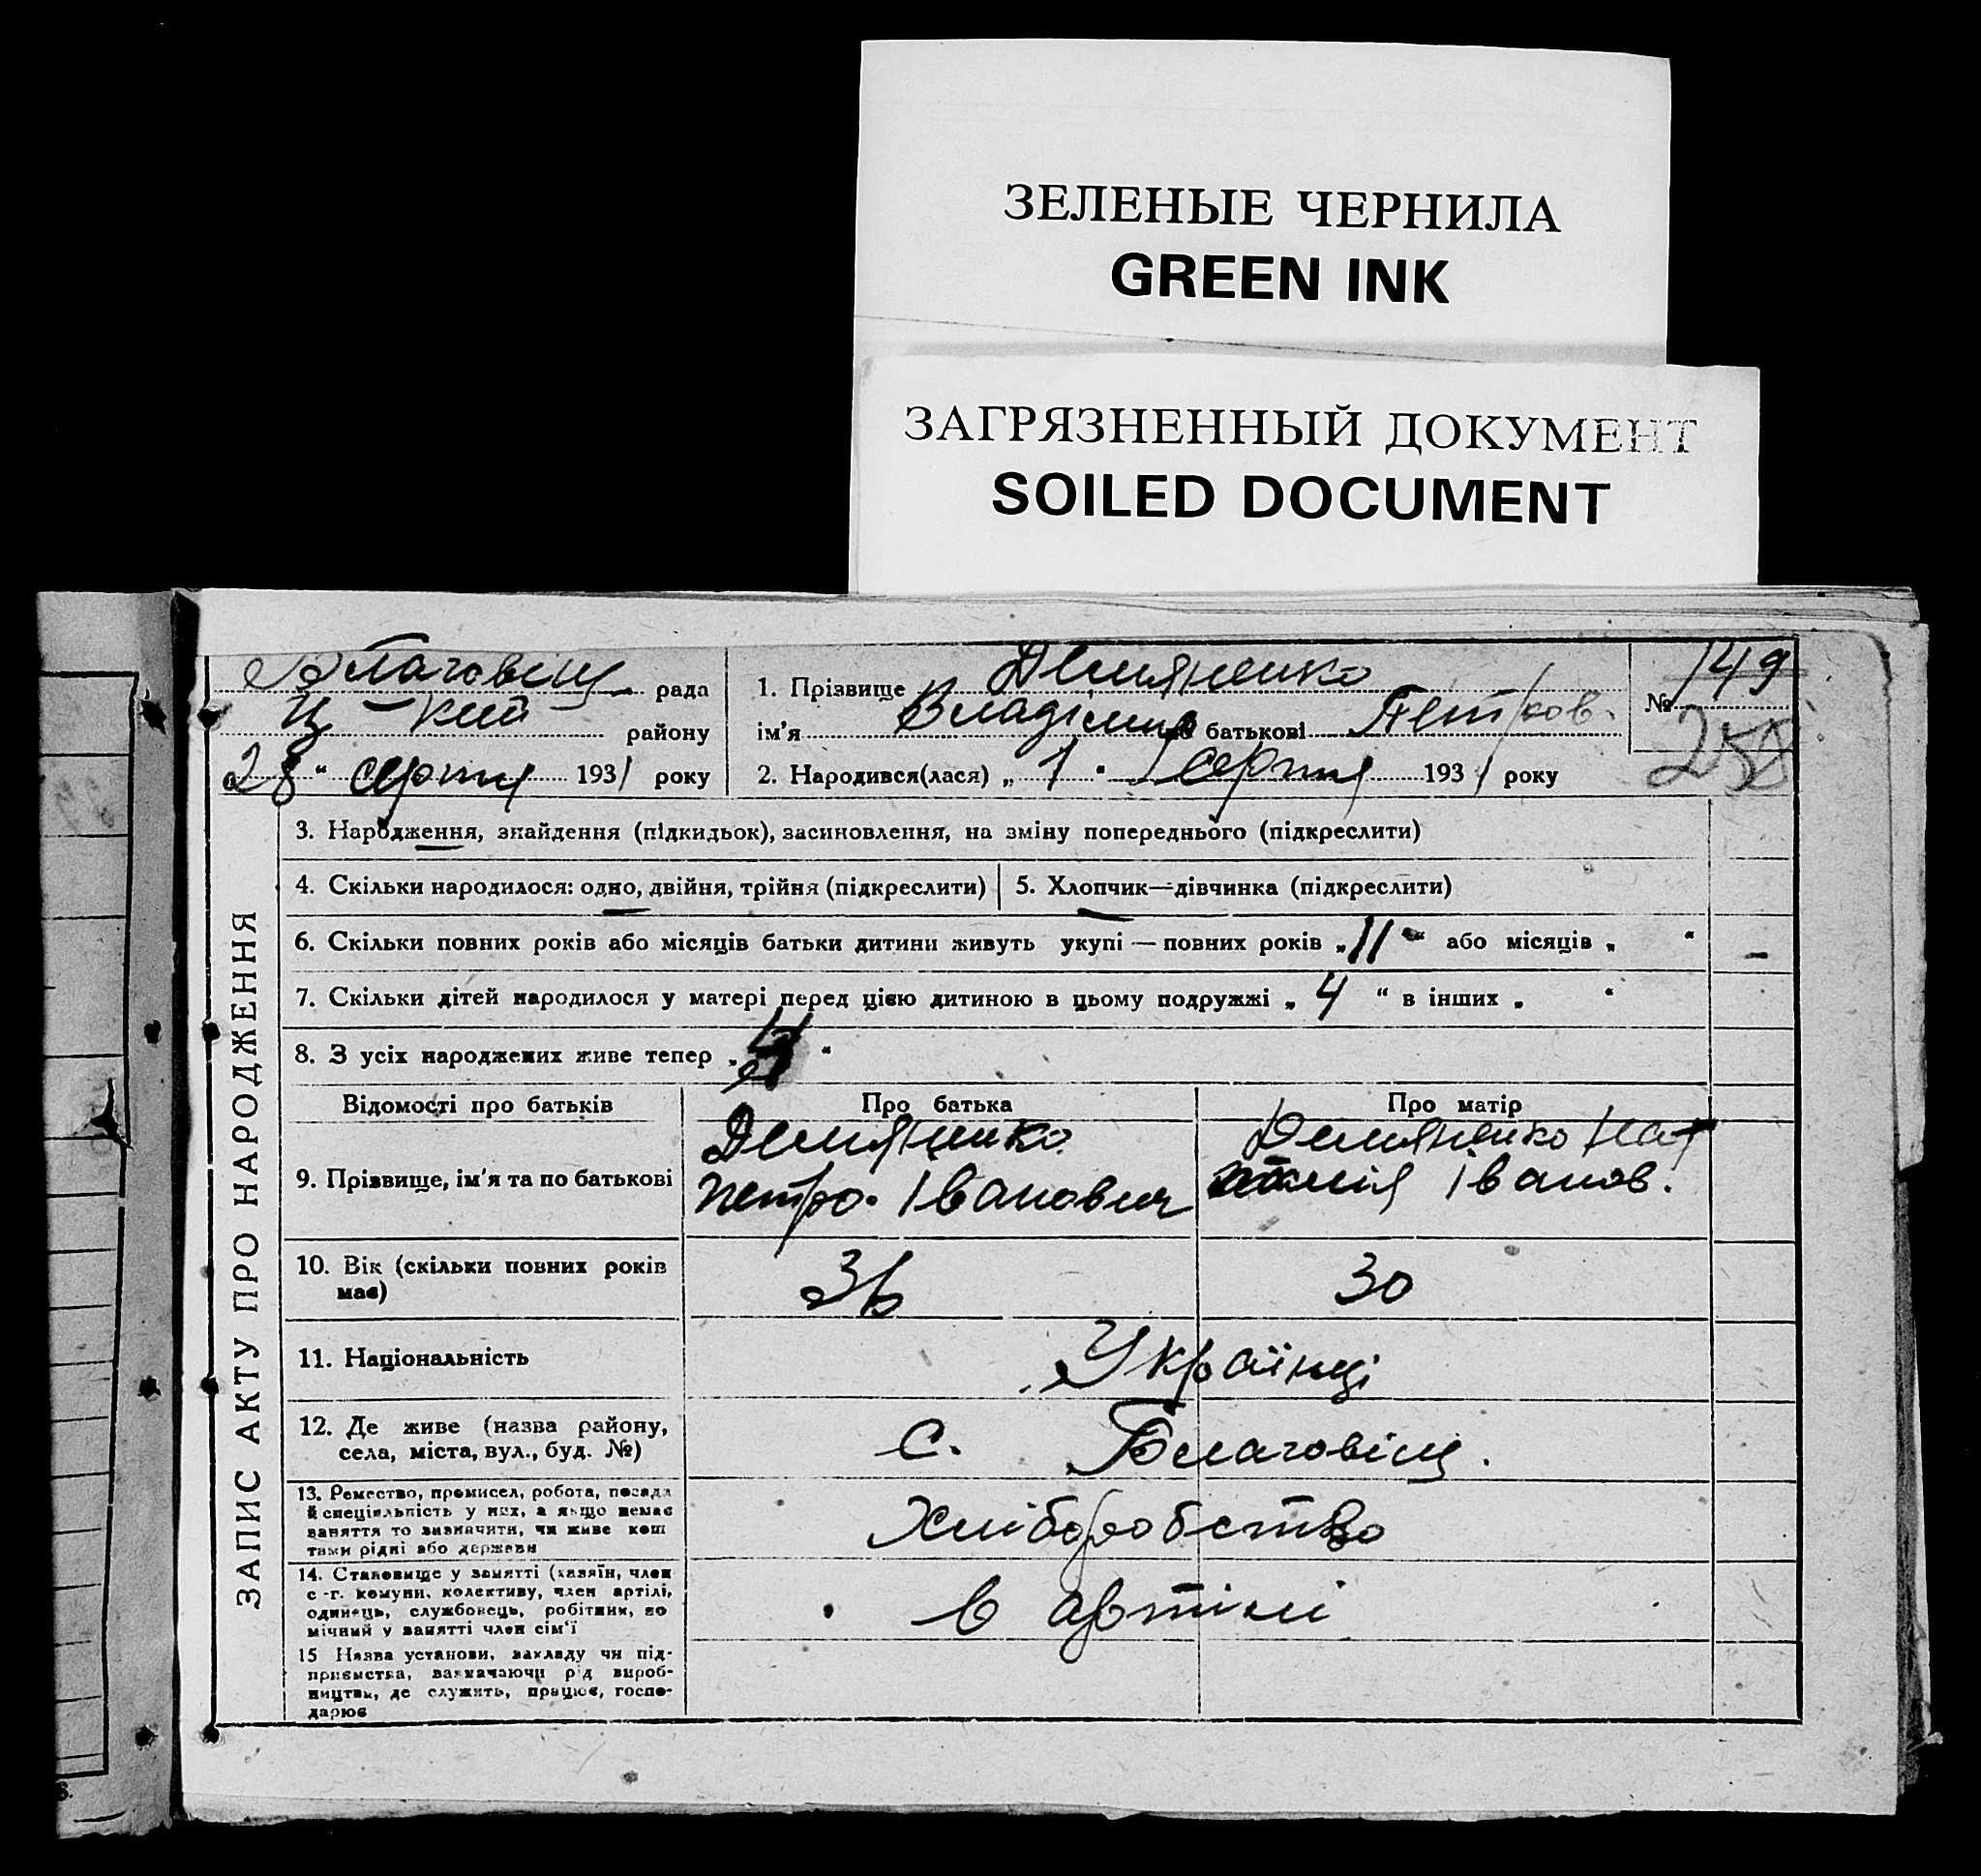 ЗЕЛЕНЫЕ ЧЕРНИЛА
GREEN INK
ЗАГРЯЗНЕННЫЙ ДОКУМЕНТ
SOILED DOCUMENT
Благовіщ. рада
Ц-кий району
28 " серпня 1931 року
1. Прізвище Демяненко
ім'я Владімир по батькові Петров.
2. Народився(лася) „ 1 " серпня 1931 року
№ 149
258
ЗАПИС АКТУ ПРО НАРОДЖЕННЯ
3. Народження, знайдення (підкидьок), засиновлення, на зміну попереднього (підкреслити)
4. Скільки народилося: одно, двійня, трійня (підкреслити)
5. Хлопчик—дівчинка (підкреслити)
6. Скільки повних років або місяців батьки дитини живуть укупі — повних років „ 11 " або місяців „ "
7. Скільки дітей народилося у матері перед цією дитиною в цьому подружжі „ 4 " в інших „ "
8. З усіх народжених живе тепер „ "
Відомості про батьків
Про батька
Про матір
9. Прізвище, ім'я та по батькові
Демяненко
Петро Іванович
Демяненко Нат
Іванов.
10. Вік (скільки повних років
має)
36
30
11. Національність
Українці
12. Де живе (назва району,
села, міста, вул., буд. №)
с. Благовіщ.
13. Ремество, промисел, робота, посада
й спеціяльність у них, а якщо немає
заняття то зазначити, чи живе кош
тами рідні або держави
Хліборобство
14. Становище у занятті (хазяїн, член
с-г. комуни, колективу, член артілі,
одинець, службовець, робітник, по
мічний у занятті член сім'ї
в артілі
15 Назва установи, закладу чи під-
приємства, зазначаючи рід вироб-
ництва, де служить, працює, госпо-
дарює